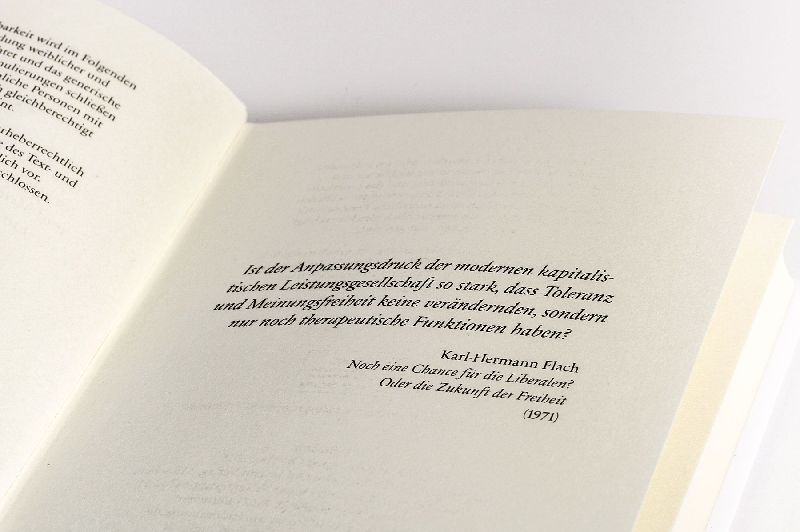 barkeit wird im Folgenden
dung weiblicher und
htet und das generische
mulierungen schließen
nliche Personen mit
gleichberechtigt
int.
rheberrechtlich
e des Text- und
lich vor.
schlossen.
Ist der Anpassungsdruck der modernen kapitalis-
tischen Leistungsgesellschaft so stark, dass Toleranz
und Meinungsfreiheit keine verändernden, sondern
nur noch therapeutische Funktionen haben?
Karl-Hermann Flach
Noch eine Chance für die Liberalen?
Oder die Zukunft der Freiheit
(1971)